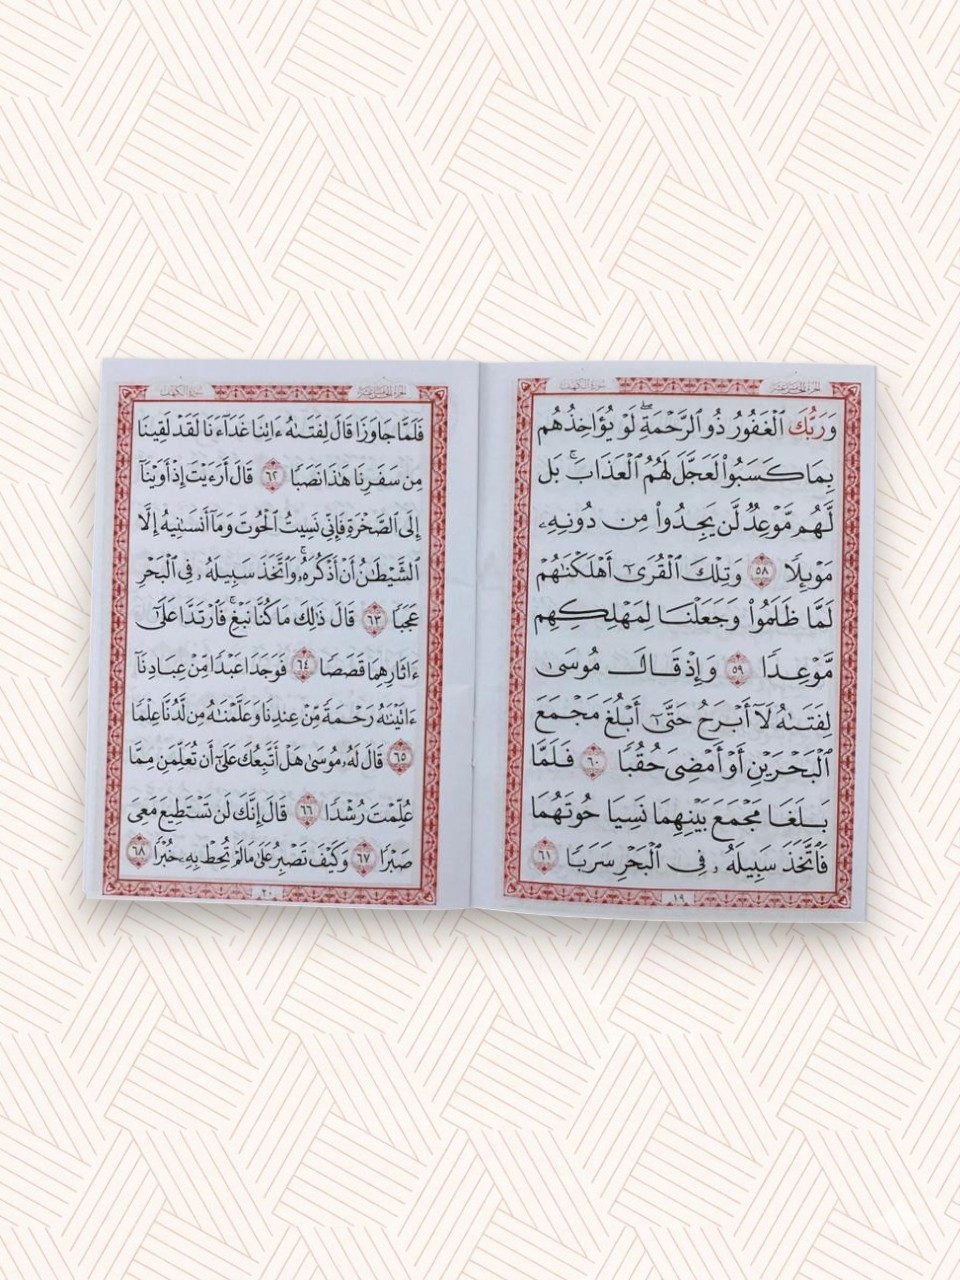 الجزء الخامس عشر
سورة الكهف
وَرَبُّكَ ٱلْغَفُورُ ذُو ٱلرَّحْمَةِ ۖ لَوْ يُؤَاخِذُهُم
بِمَا كَسَبُوا۟ لَعَجَّلَ لَهُمُ ٱلْعَذَابَ ۚ بَل
لَّهُم مَّوْعِدٌ لَّن يَجِدُوا۟ مِن دُونِهِۦ
مَوْئِلًا ٥٨ وَتِلْكَ ٱلْقُرَىٰٓ أَهْلَكْنَٰهُمْ
لَمَّا ظَلَمُوا۟ وَجَعَلْنَا لِمَهْلِكِهِم
مَّوْعِدًا ٥٩ وَإِذْ قَالَ مُوسَىٰ
لِفَتَىٰهُ لَآ أَبْرَحُ حَتَّىٰٓ أَبْلُغَ مَجْمَعَ
ٱلْبَحْرَيْنِ أَوْ أَمْضِىَ حُقُبًا ٦٠ فَلَمَّا
بَلَغَا مَجْمَعَ بَيْنِهِمَا نَسِيَا حُوتَهُمَا
فَٱتَّخَذَ سَبِيلَهُۥ فِى ٱلْبَحْرِ سَرَبًا ٦١
١٩
الجزء الخامس عشر
سورة الكهف
فَلَمَّا جَاوَزَا قَالَ لِفَتَىٰهُ ءَاتِنَا غَدَآءَنَا لَقَدْ لَقِينَا
مِن سَفَرِنَا هَٰذَا نَصَبًا ٦٢ قَالَ أَرَءَيْتَ إِذْ أَوَيْنَآ
إِلَى ٱلصَّخْرَةِ فَإِنِّى نَسِيتُ ٱلْحُوتَ وَمَآ أَنسَىٰنِيهُ إِلَّا
ٱلشَّيْطَٰنُ أَنْ أَذْكُرَهُۥ ۚ وَٱتَّخَذَ سَبِيلَهُۥ فِى ٱلْبَحْرِ
عَجَبًا ٦٣ قَالَ ذَٰلِكَ مَا كُنَّا نَبْغِ ۚ فَٱرْتَدَّا عَلَىٰٓ
ءَاثَارِهِمَا قَصَصًا ٦٤ فَوَجَدَا عَبْدًا مِّنْ عِبَادِنَآ
ءَاتَيْنَٰهُ رَحْمَةً مِّنْ عِندِنَا وَعَلَّمْنَٰهُ مِن لَّدُنَّا عِلْمًا
٦٥ قَالَ لَهُۥ مُوسَىٰ هَلْ أَتَّبِعُكَ عَلَىٰٓ أَن تُعَلِّمَنِ مِمَّا
عُلِّمْتَ رُشْدًا ٦٦ قَالَ إِنَّكَ لَن تَسْتَطِيعَ مَعِىَ
صَبْرًا ٦٧ وَكَيْفَ تَصْبِرُ عَلَىٰ مَا لَمْ تُحِطْ بِهِۦ خُبْرًا ٦٨
٢٠